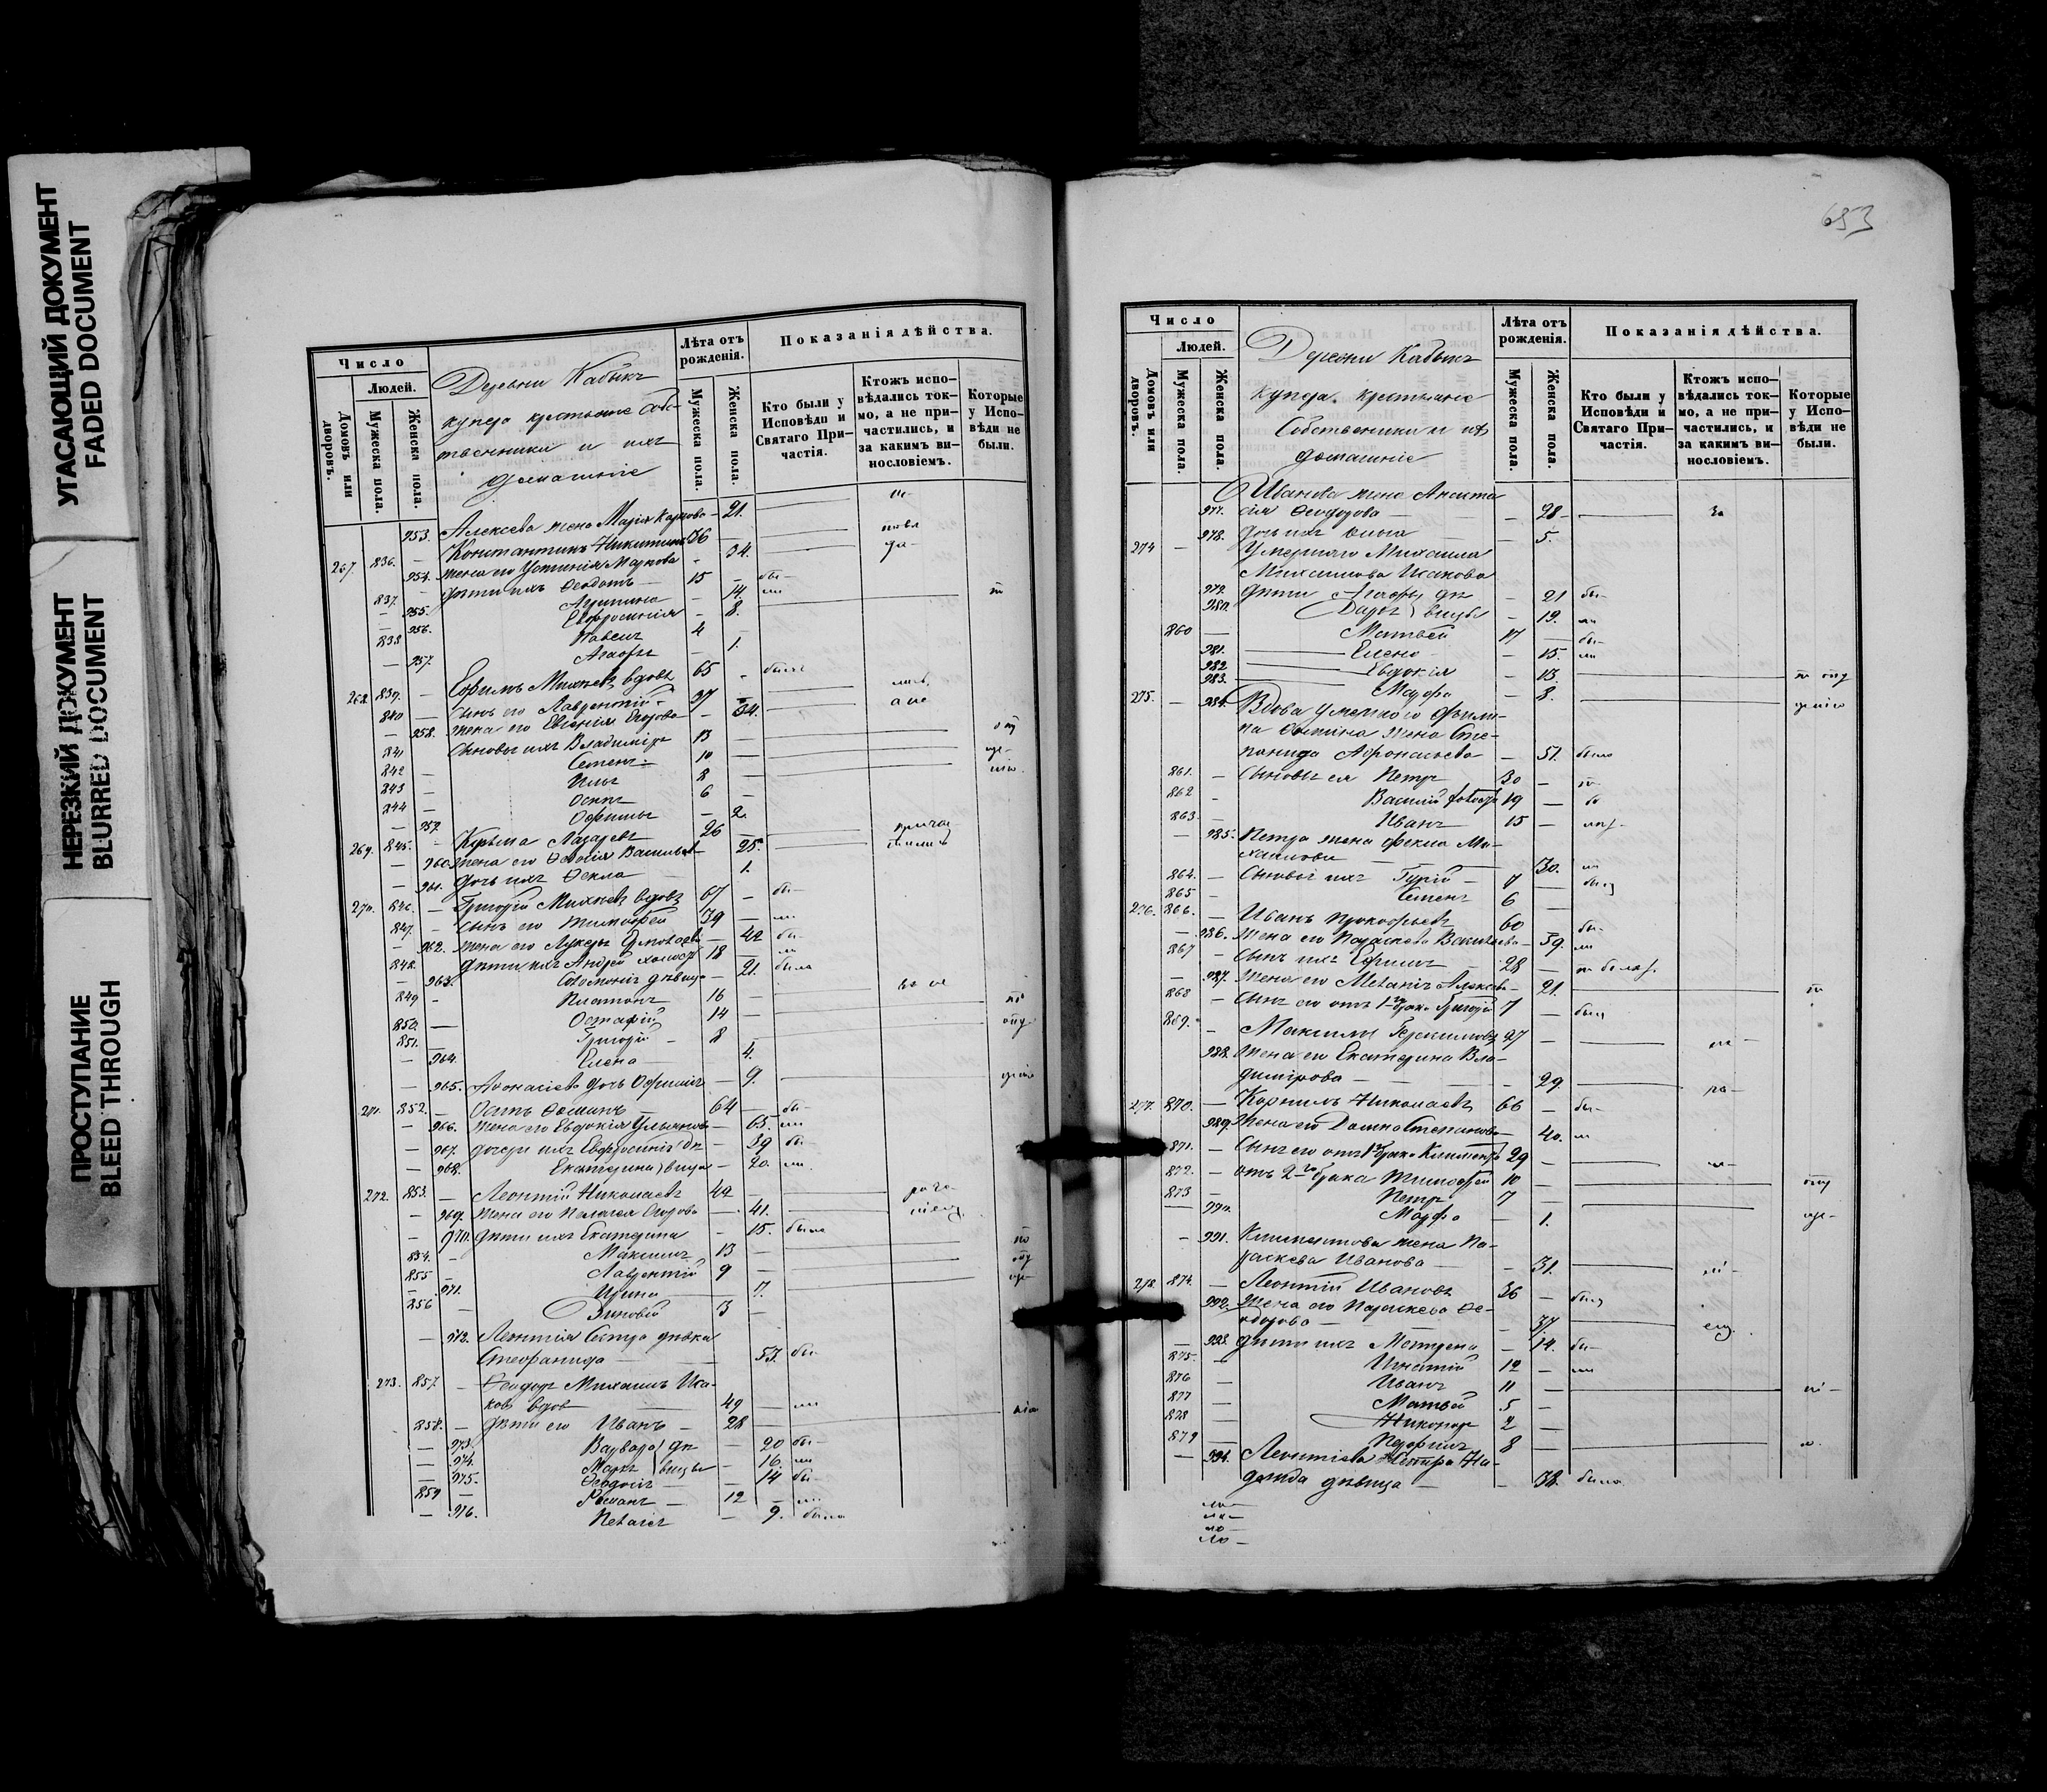 УГАСАЮЩИЙ ДОКУМЕНТ
FADED DOCUMENT
НЕРЕЗКИЙ ДОКУМЕНТ
BLURRED DOCUMENT
ПРОСТУПАНИЕ
BLEED THROUGH
Число
Людей.
Домовъ или дворовъ.
Мужеска пола.
Женска пола.
Деревни Кабык
купера крестьяне собс-
твенники и ихъ
домашніе
Лѣта отъ рожденія.
Мужеска пола.
Женска пола.
Показанія дѣйства.
Кто были у Исповѣди и Святаго При-частія.
Ктожъ испо-вѣдались ток-мо, а не при-частились, и за какимъ ви-нословіемъ.
Которые у Испо-вѣди не были.
953. Алексѣева жена Марія Карпова 21.
267. 836. Константинъ Никитинъ 36
954. жена его Устинія Маркова 34.
837. дѣти ихъ Ѳеодотъ 15 бы-
955. Агрипина 14. ли
956. Евфросинія 8.
838 Павелъ 4
957. Агафія 1.
268 839. Ефимъ Михѣевъ вдовъ 65 былъ
840 сынъ его Лаврентій 37
958. жена его Евгенія Егорова 34.
841 сыновья ихъ Владиміръ 13
842 Семенъ 10
843 Илья 8
844 Осипъ 6
959. Офимья 2.
269. 845. Кузьма Лазаревъ 26
960. жена его Ѳеодосія Васильева 25.
961. дочь ихъ Ѳекла 1.
270. 846. Григорій Михѣевъ вдовъ 67 бы-
847. сынъ его Тимофей 39 ли
962. жена его Лукерья 42 бы-
848. дѣти ихъ Андрей холостъ 18 ли
963. Соломонія дѣвица 21. была
849 Платонъ 16
850. Остафій 14
851. Григорій 8
964. Елена 4.
965. Афонасіева дочь Офимія 9.
271. 852. Осипъ Ѳоминъ 64 бы-
966. жена его Евдокія 63. ли
967. дочери ихъ Евфросинія дѣ- 39 бы-
968. Екатерина вицы 20. ли
272. 853. Леонтій Николаевъ 42
969. жена его Пелагея 41.
970. дѣти ихъ Екатерина 15. была
854. Максимъ 13
855 Лаврентій 9
971. Ирина 7.
856 Зиновій 3
972. Леонтія сестра дѣвка
Стефанида 53. бы-
273. 857. Ѳеодоръ Михаиловъ Иса-
ковъ вдовъ 49 ли
858. дѣти его Иванъ 28
973. Варвара дѣ- 20 бы-
974. Марія вицы 16. ли
975. Ѳеодосія 14 бы-
859 Романъ 12 ли
976. Пелагія 9. была
653
Число
Людей.
Домовъ или дворовъ.
Мужеска пола.
Женска пола.
Деревни Кабык
купера крестьяне
собственники и ихъ
домашніе
Лѣта отъ рожденія.
Мужеска пола.
Женска пола.
Показанія дѣйства.
Кто были у Исповѣди и Святаго При-частія.
Ктожъ испо-вѣдались ток-мо, а не при-частились, и за какимъ ви-нословіемъ.
Которые у Испо-вѣди не были.
Иванова жена Анаста
977. сія Ѳеодорова 28 за
978. дочь ихъ 5.
274 Умершаго Михаила
Михаилова Исакова
979. дѣти Агафья дѣ- 21 бы-
980. Дарья вицы 19. ли
860 Матвей 17 бы-
981. Елена 15. ли
982 Евдокія 13
983. Марфа 8.
275. 984. Вдова умершаго Фили-
па Ѳомина жена Сте-
панида Афонасьева 51. была
861. Сыновья ея Петръ 30
862 Василій холостъ 19
863. Иванъ 15
985. Петра жена Фекла Ми-
хаилова 30.
864. Сыновья ихъ Гурій 7
865 Семенъ 6
276. 866. Иванъ Прокофьевъ 60 бы-
986. жена его Параскева Васильева 59. ли
867 Сынъ ихъ Ефимъ 28
987. жена его Меланія Алексѣева 21.
868 Сынъ его отъ 1го брака Григорій 7
869. Максимъ Герасимовъ 27
988. жена его Екатерина Вла-
димірова 29
277. 870. Корнилъ Николаевъ 66 бы-
989. жена его Домна Степанова 40. ли
871. Сынъ его отъ 1го брака Климентъ 29
872. отъ 2го брака Тимофей 10
873 Петръ 7
990. Марфа 1.
991. Климентова жена Па-
раскева Иванова 31.
278. 874. Леонтій Ивановъ 36
992. жена его Параскева Ѳе-
одорова 37
993. дѣти ихъ Матрена 14. бы-
875. Игнатій 12 ли
876 Иванъ 11
877 Матвей 5
878 Никоноръ 2
879 Порфирій 8
994. Леонтіева сестра На-
дежда дѣвица 38. была